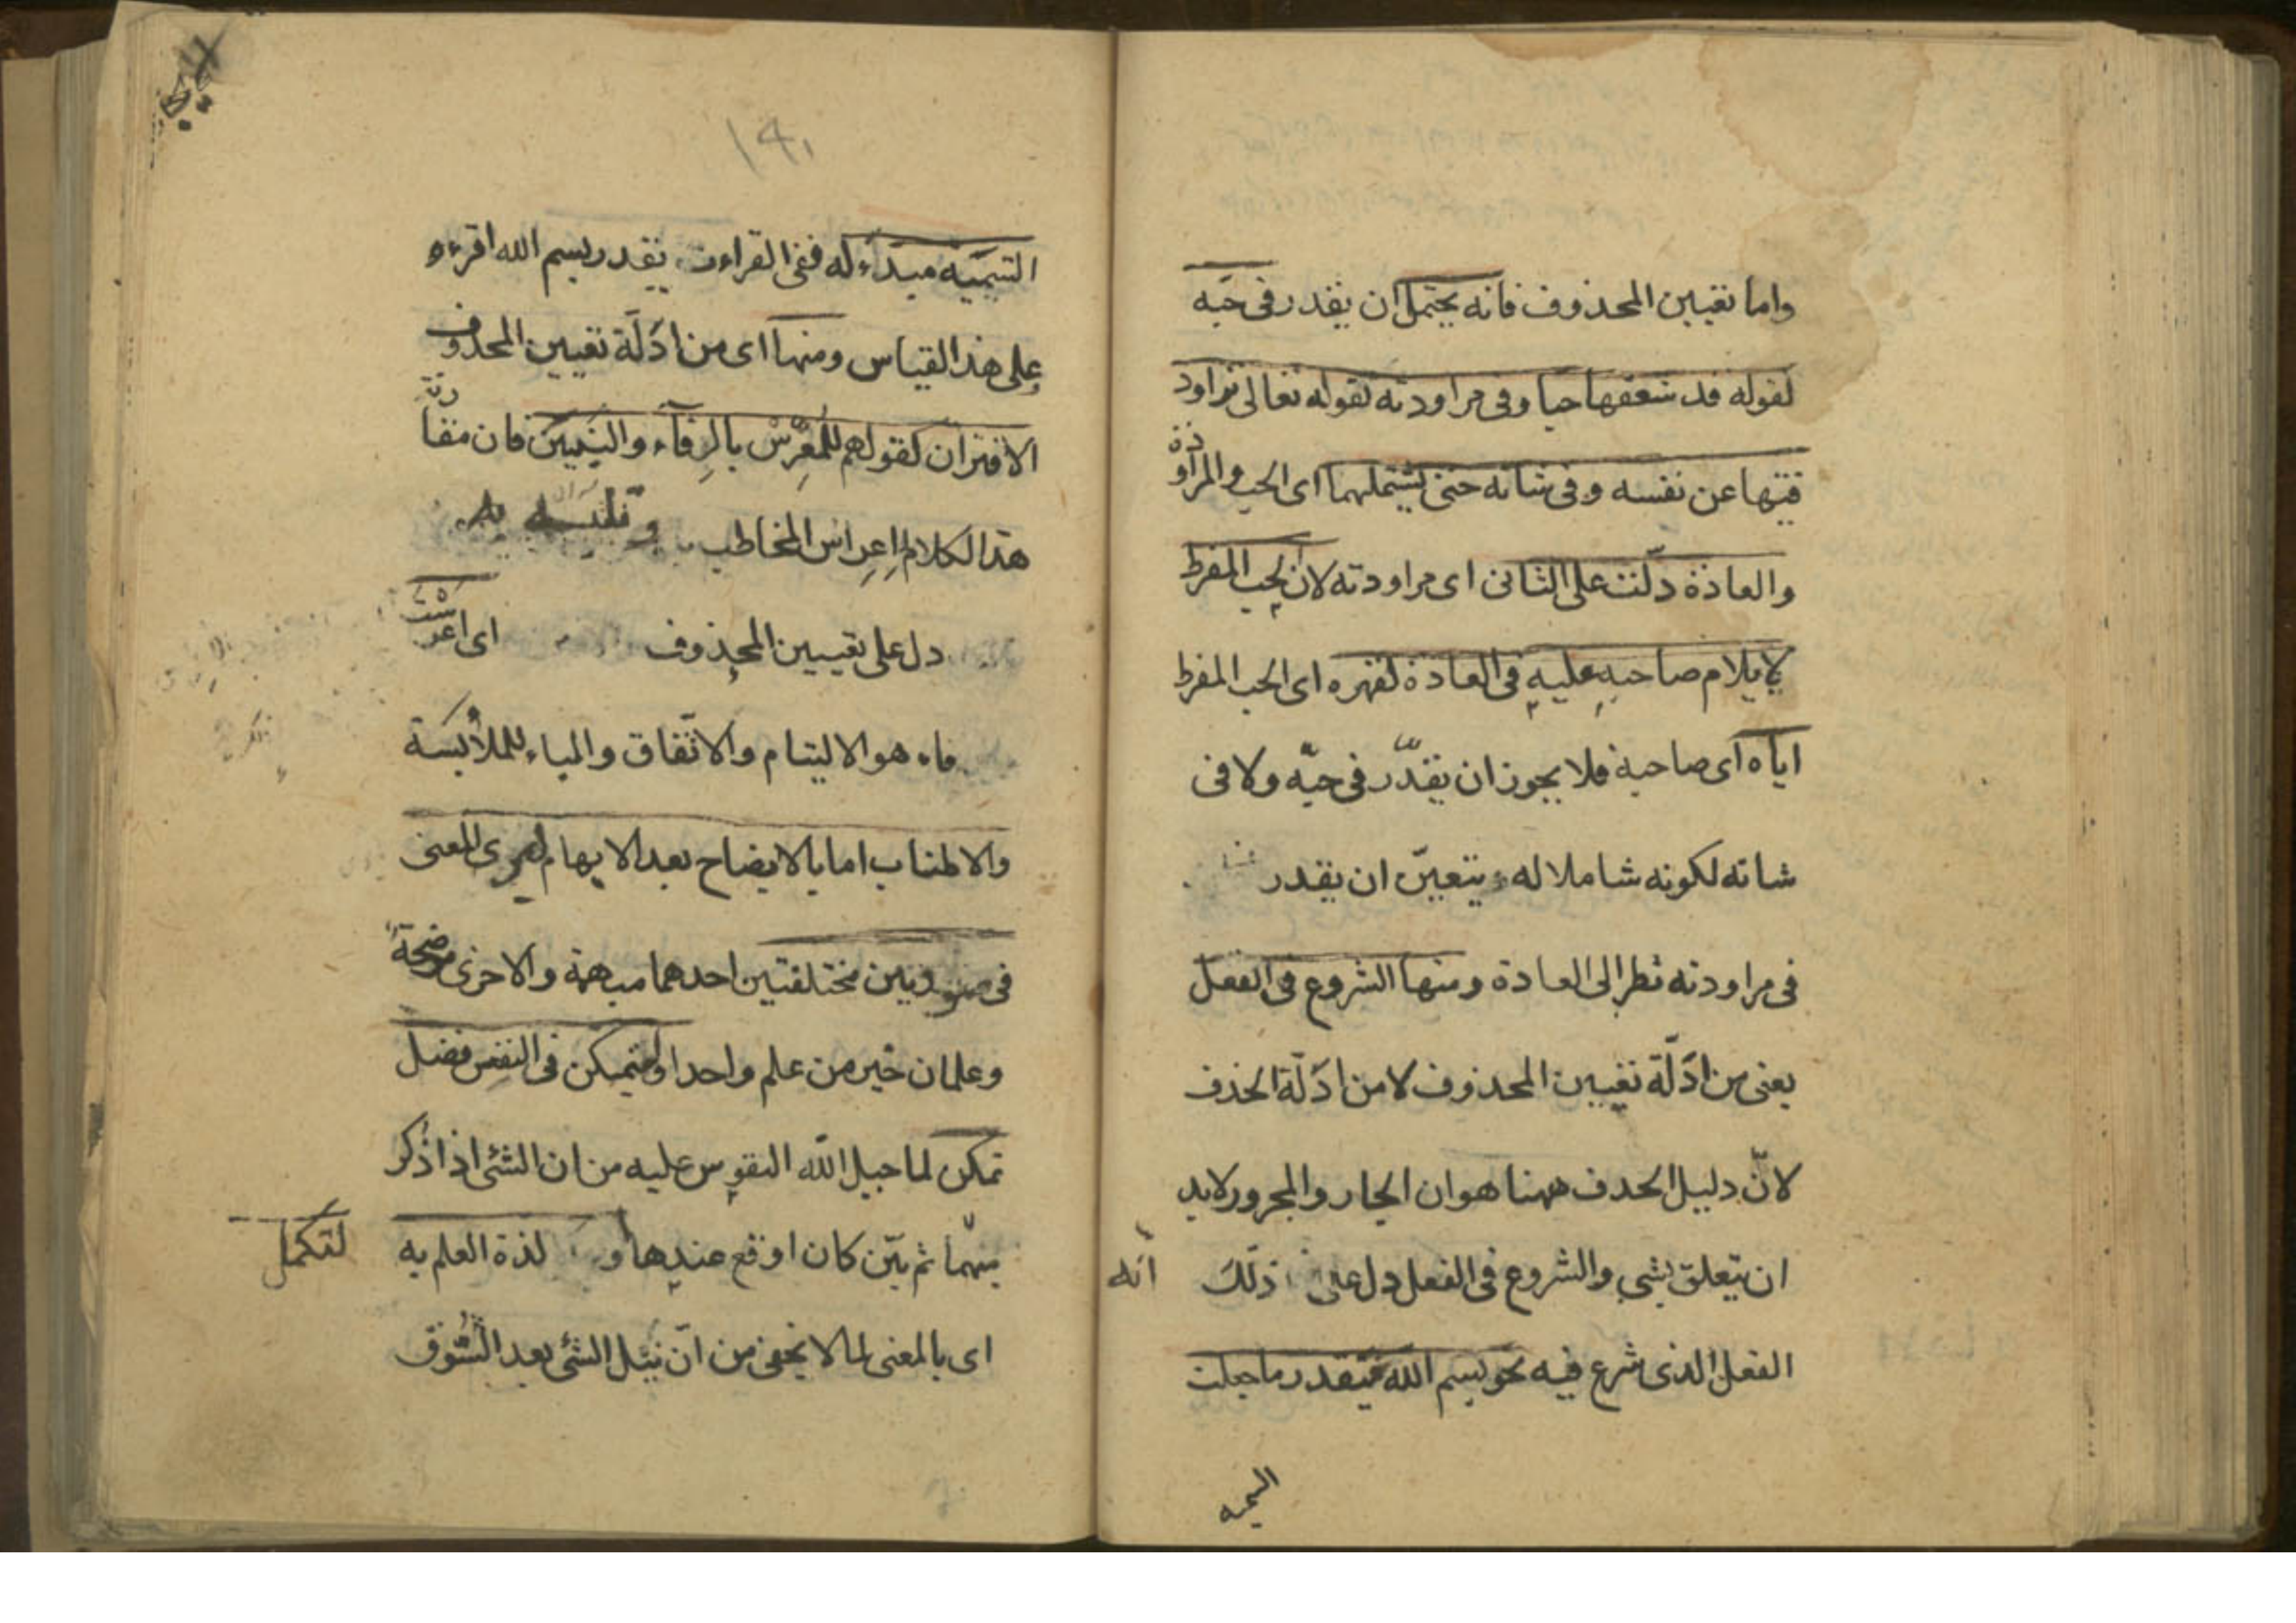 واما تعيين المحذوف فانه يحتمل ان يقدر فى حبه
لقوله قد شغفها حبا وفى مراودته لقوله تعالى تراود
فتيها عن نفسه وفى شانه حتى يشتملهما اى الحب والمراودة
والعادة دلت على الثانى اى مراودته لان الحب المفرط
لا يلام صاحبه عليه فى العادة لقهره اى الحب المفرط
اياه اى صاحبه فلا يجوز ان يقدّر فى حبّه ولا فى
شانه لكونه شاملا له فيتعيّن ان يقدر
فى مراودته نظرا الى العادة ومنها الشروع فى الفعل
يعنى من ادلّة تعيين المحذوف لا من ادلّة الحذف
لانّ دليل الحذف ههنا هو ان الجار والمجرور لابد
ان يتعلق بشئ والشروع فى الفعل دل على ذلك
انه
الفعل الذى شرع فيه نحو بسم الله فيقدر ما جعلت
التسمية
١٤٠
التسمية مبداء له ففى القراءت يقدر بسم الله اقرءه
وعلى هذا القياس ومنها اى من ادلّة تعيين المحذوف
الاقتران كقولهم للمعرّس بالرفآء والبنيين فان مقارنة
هذا الكلام لاعراس المخاطب
دل على تعيين المحذوف اى اعرست
فاء هو الاليتام والاتّفاق والباء للملابسة
والاطناب اما بالايضاح بعد الابهام ليرى المعنى
فى صورتين مختلفتين احدهما مبهمة والاخرى موضحة
وعلمان خير من علم واحد او ليتمكن فى النفس فضل
تمكن لما جبل الله النفوس عليه من ان الشئ اذا ذكر
مبهما ثم بيّن كان اوقع عندها او لذة العلم به
لتكمل
اى بالمعنى لما لا يخفى من انّ نيل الشئ بعد الشّوق